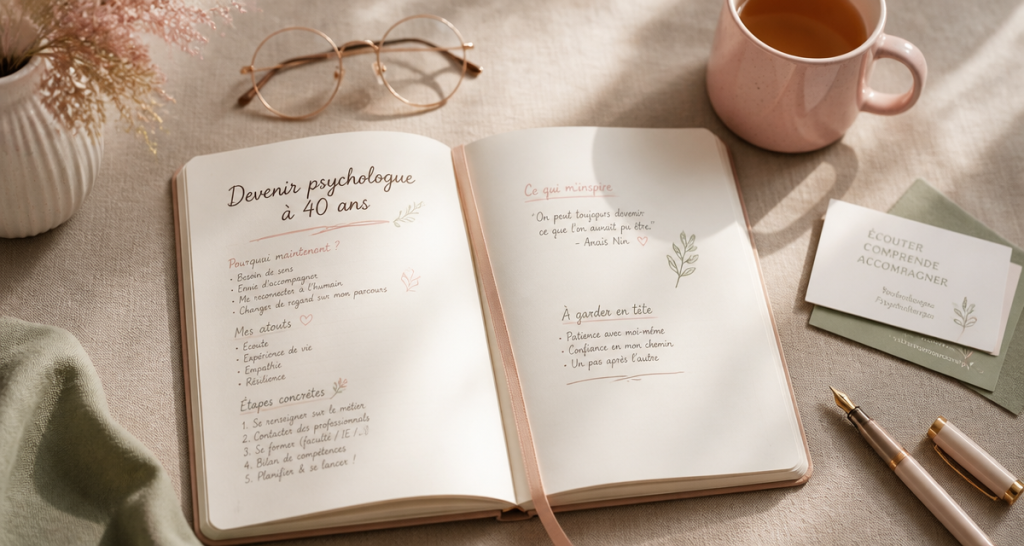 Devenir psychologue
à 40 ans
Pourquoi maintenant ?
• Besoin de sens
• Envie d'accompagner
• Me reconnecter à l'humain
• Changer de regard sur mon parcours
Mes atouts
• Écoute
• Expérience de vie
• Empathie
• Résilience
Étapes concrètes
1. Se renseigner sur le métier
2. Contacter des professionnels
3. Se former (faculté /
4. Bilan de compétences
5. Planifier & se lancer !
Ce qui m'inspire
"On peut toujours devenir
ce que l'on aurait pu être."
- Anaïs Nin
À garder en tête
• Patience avec moi-même
• Confiance en mon chemin
• Un pas après l'autre
ÉCOUTER
COMPRENDE
ACCOMPAGNER